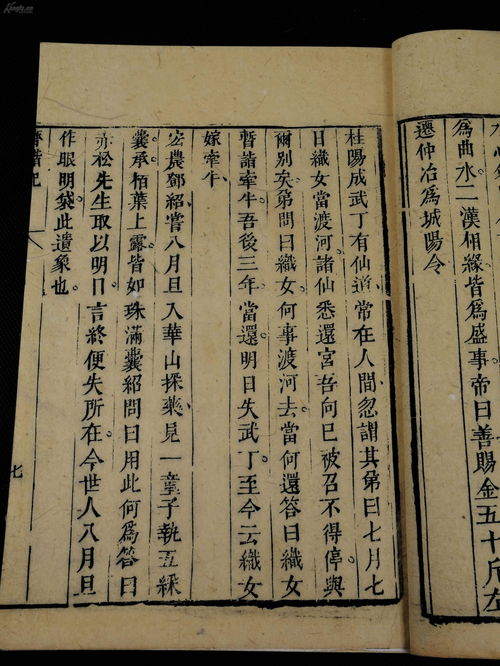 水心
爲曲水二漢相緣皆爲盛事帝曰善賜金五十斤左
遷仲冶爲城陽令
桂陽成武丁有仙道常在人間忽謂其弟曰七月七
日織女當渡河諸仙悉還宮吾向已被召不得停與
爾別矣弟問曰織女何事渡河去當何還答曰織女
暫詣牽牛吾後三年當還明日失武丁至今云織女
嫁牽牛
宏農鄧紹嘗八月旦入華山採藥見一童子執五綵
囊承栢葉上露皆如珠滿囊紹問曰用此何爲答曰
赤松先生取以明目言終便失所在今世人八月旦
作眼明袋此遺象也
齊諧記
七
Kongfz.cn